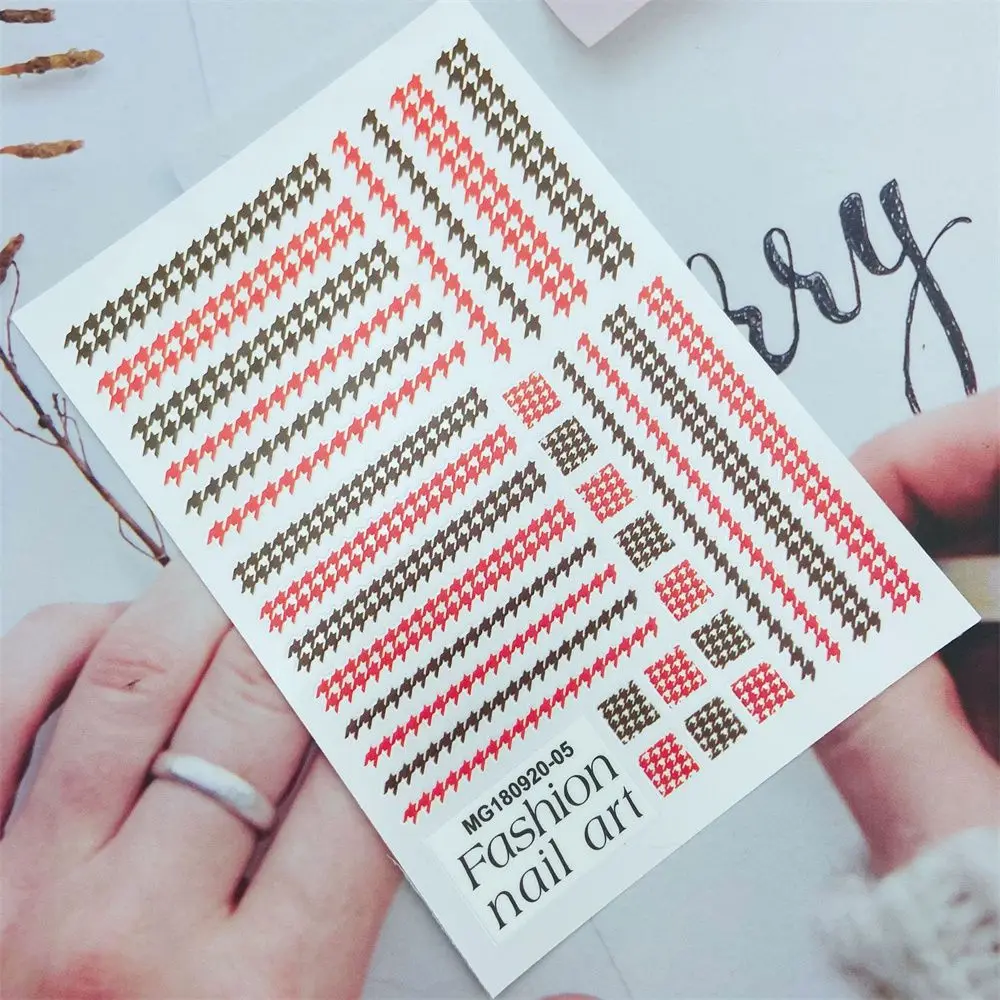 rry
MG180920-05
Fashion
nail art